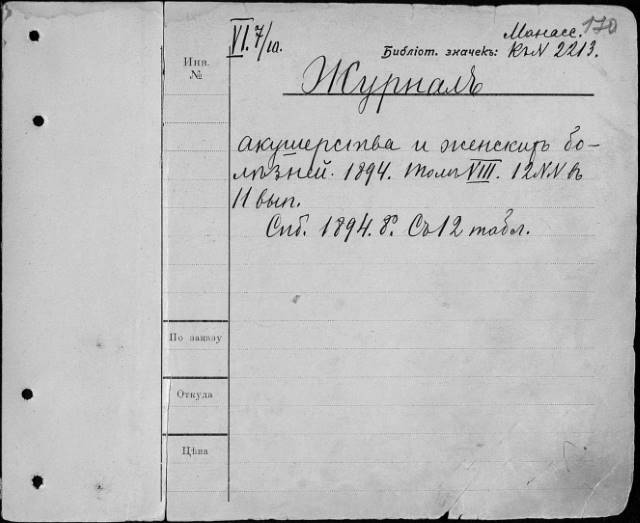 Манасс. 170
VI. 7/10.
Библіот. значекъ: КъN 2213.
Инв.
№
Журналъ
акушерства и женскихъ бо-
лѣзней. 1894. томъ VIII. 12 N.N въ
11 вып.
Спб. 1894. 8º. Съ 12 табл.
По заказу
Откуда
Цѣна